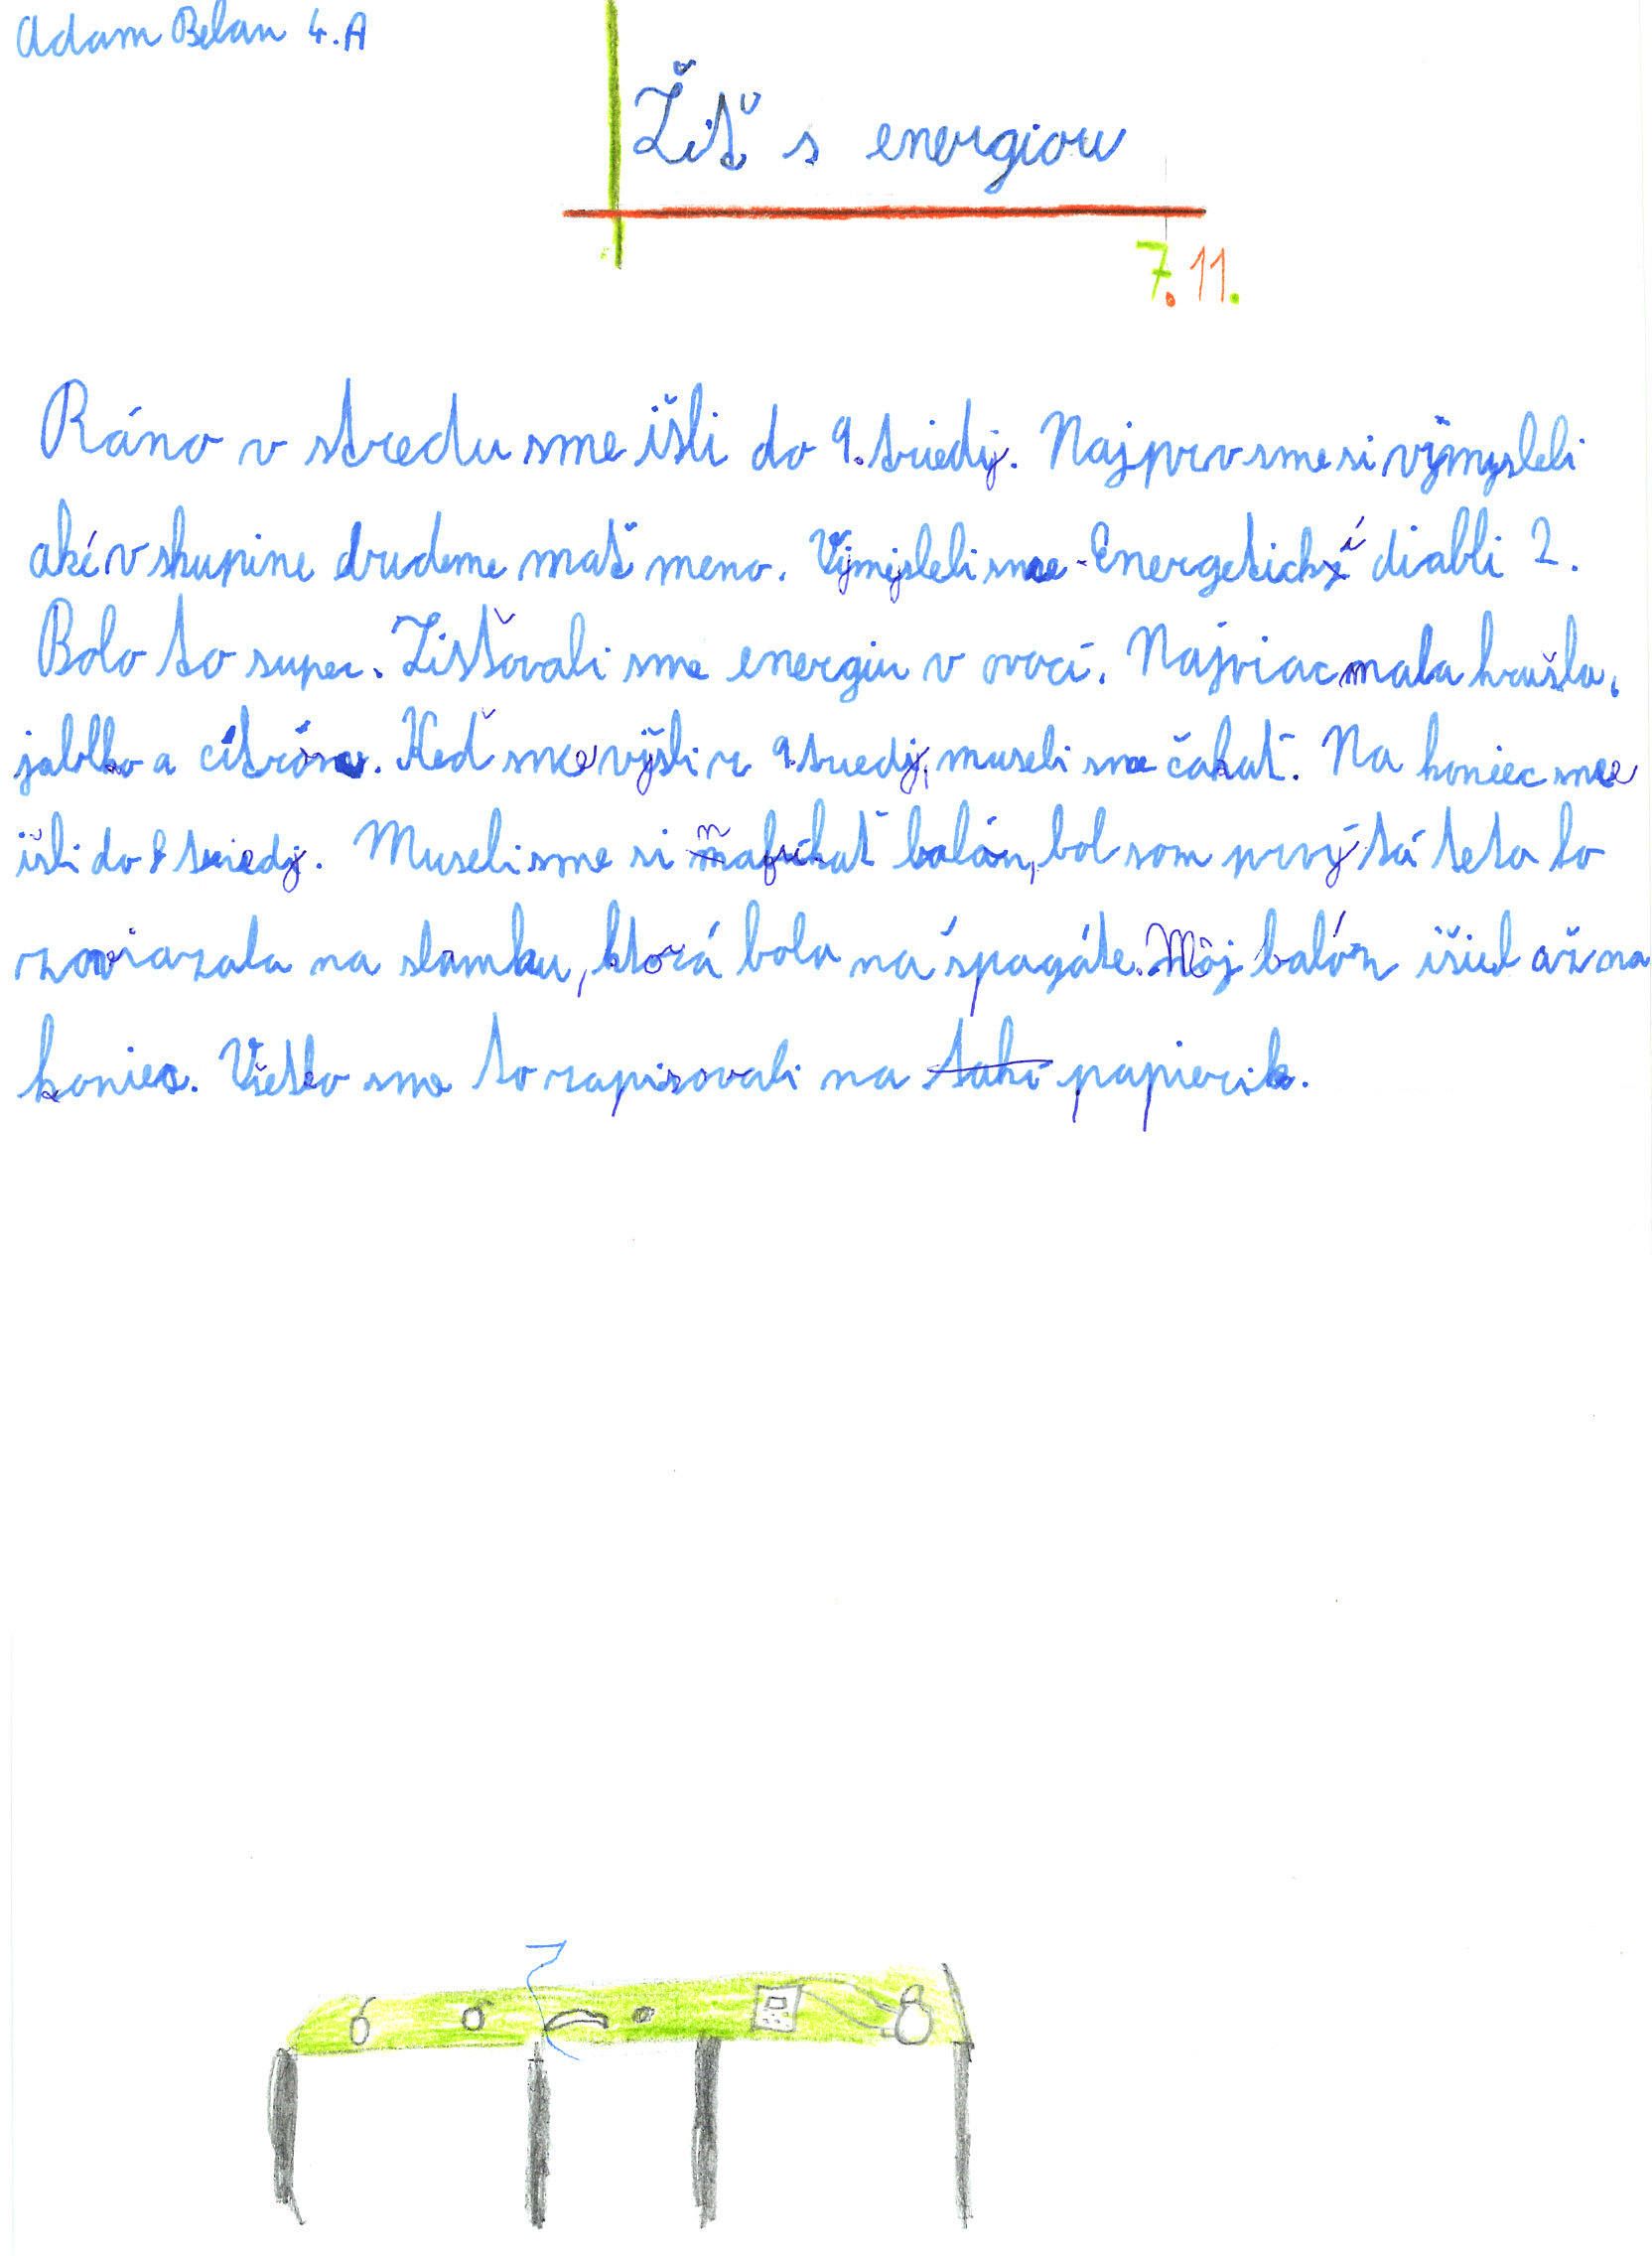 Adam Belan 4.A
Žiť s energiou
7.11.
Ráno v stredu sme išli do 9. triedy. Najprv sme si výmysleli
aké v skupine budeme mať meno. Vymysleli sme Energetickí diabli 2.
Bolo to super. Zisťovali sme energiu v ovocí. Najviac mala hruška,
jablko a citróny. Keď sme vyšli z 9 triedy, museli sme čakať. Na koniec sme
išli do 8 triedy. Museli sme si nafúkať balón, bol som prvý tá teta to
zaviazala na slamku, ktorá bola na špagáte. Môj balón išiel až na
koniec. Všetko sme to zapisovali na papierik.